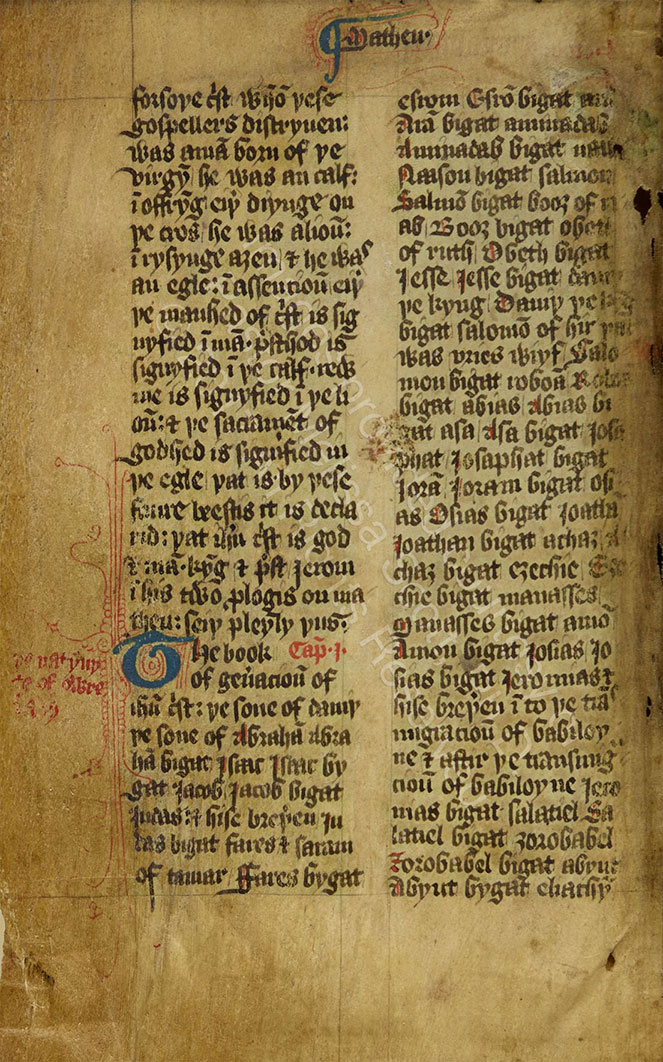 Matheu·
forsoþe c̄st wħō þese
gospellers distryuen:
was amā born of þe
virgyn̄ he was an calf:
ī offryg̃ eiþ̕ diynge on
þe cros he was alioū:
ī rysynge aȝen ⁊ he was
an egle: ī assencioū eiþ̕
þe manhed of c̄st is sig
nyfied ī mā· p̄sthod is
signyfied ī þe calf· rew
me is signyfied ī þe li
oū: ⁊ þe sacramēt of
godhed is signified in
þe egle þat is· by þese
foure beestis it is decla
rid: þat ih̄u c̄st is god
⁊ mā· kyg̃ ⁊ p̄st Jerom
ī his two plogis on ma
theu: seiþ pleynly þus·
The book Cap̄· j·
of gen̄acioū of
ih̄u c̄st: þe sone of dauiþ
þe sone of Abrahā Abra
hā bigat Isaac Isaac by
gat Jacob Jacob bigat
Judas: ⁊ hise breþen Ju
das bigat fares ⁊ saram
of tamar ffares bygat
esrom Esrō bigat
Arā bigat aminadab
Aminadab bigat
Naason bigat salmon
Salmō bigat booz of
ab Booz bigat obeth
of ruth Obeth bigat
Jesse Jesse bigat
þe kyng Dauiþ þe
bigat salomō of hir
was vries wiyf Salo
mon bigat roboā
bigat abias Abias bi
gat asa Asa bigat Josa
phat Josaphat bigat
Jorā Joram bigat osi
as Osias bigat Joatha
Joathan bigat achaz A
chaz bigat ezechie Eze
chie bigat manasses
Manasses bigat amō
Amon bigat Josias Jo
sias bigat Jeconias ⁊
hise breþen ī to þe trās
migracioū of babiloy
ne ⁊ aftir þe transmig
cioū of babiloyne Jeco
nias bigat salatiel Sa
latiel bigat zorobabel
Zorobabel bigat abyut
Abyut bygat eliachȳ